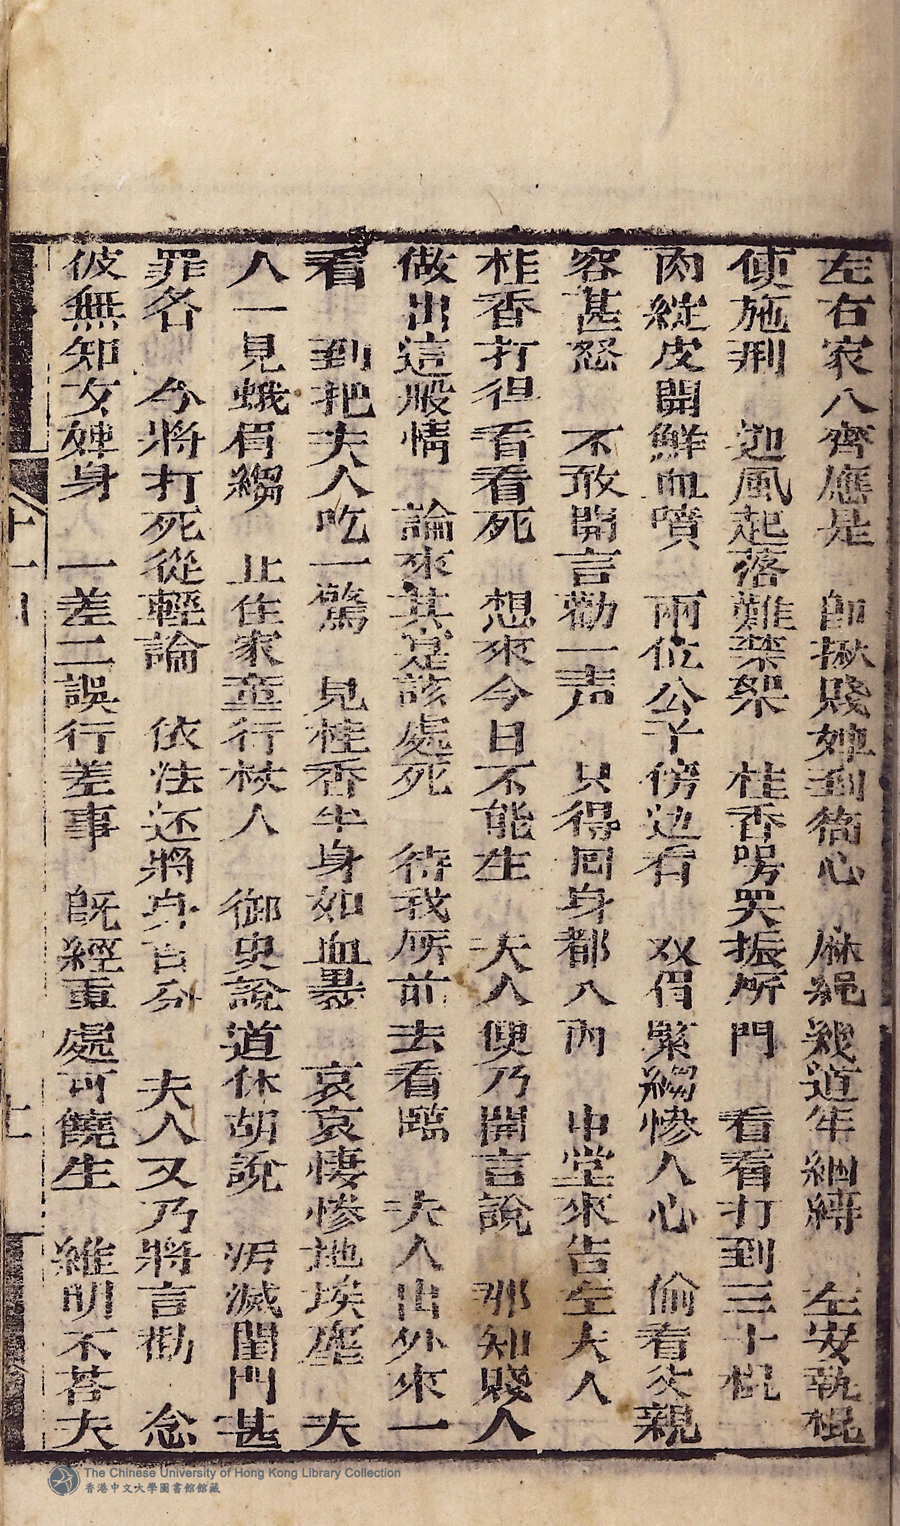 左右家人齊應是　即揪賤婢到街心　麻繩幾道牢綑縛　左安執棍
使施刑　迎風起落難架　桂香啼哭振所門　看看打到三十棍
肉綻皮開鮮血噴　兩位公子傍边看　双眉緊縐慘人心　偷看父親
容甚怒　不敢開言勸一声　只得回身都入內　中堂來告左夫人
桂香打得看看死　想來今日不能生　夫人便乃開言說　那知賤人
做出這般情　論來其寔該處死　待我所前去看臨　夫人出外來一
看　到把夫人吃一驚　見桂香半身如血暴　哀哀悽慘地埃塵　夫
人一見蛾眉縐　止住家童行杖人　御史說道休胡說　污滅閨門甚
罪名　今將打死從輕論　依法还將身首分　夫人又乃將言勸　念
彼無知女婢身　一差二誤行差事　既經重處可饒生　維明不荅夫
十一
The Chinese University of Hong Kong Library Collection
香港中文大學圖書館館藏